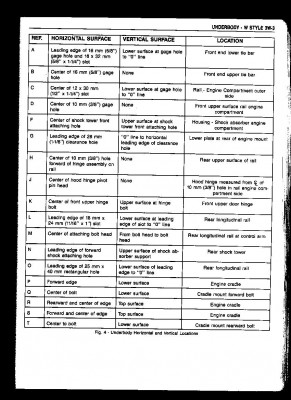 UNDERBODY - W STYLE 2W-3
REF. HORIZONTAL SURFACE VERTICAL SURFACE LOCATION
A Leading edge of 16 mm (5/8") gage hole and 16 x 32 mm (5/8" x 1-1/4") slot Lower surface at gage hole to "0" line Front end lower tie bar
B Center of 16 mm (5/8") gage hole None Front end upper tie bar
C Center of 12 x 32 mm (1/2" x 1-1/4") slot Lower surface at gage hole to "0" line Rail - Engine Compartment outer side
D Center of 10 mm (3/8") gage hole None Front upper surface rail engine compartment
F Center of shock tower front attaching hole Upper surface at shock tower front attaching hole Housing - Shock absorber engine compartment
G Leading edge of 28 mm (1-1/8") clearance hole "0" line to horizontal leading edge of clearance hole Lower plate at rear of engine mount
H Center of 10 mm (3/8") hole forward of hinge assembly on rail None Rear upper surface of rail
J Center of hood hinge pivot pin head None Hood hinge measured from ℄ of 10 mm (3/8") hole in rail engine compartment side
K Center of front upper hinge bolt Upper surface at hinge bolt Front upper door hinge
L Leading edge of 18 mm x 24 mm (11/16" x 1") slot Lower surface at leading edge of slot to "0" line Rear longitudinal rail
M Center of attaching bolt head From bolt head to bolt head Rear longitudinal rail at control arm
N Leading edge of forward shock attaching hole Upper surface of shock absorber support Rear shock tower
O Leading edge of 25 mm x 40 mm rectangular hole Lower surface of leading edge to "0" line Rear longitudinal rail
P Forward edge Lower surface Engine cradle
Q Center of bolt Lower surface Cradle mount forward bolt
R Rearward and center of edge Top surface Engine cradle
S Forward and center of edge Top surface Engine cradle
T Center to bolt Lower surface Cradle mount rearward bolt
Fig. 4 - Underbody Horizontal and Vertical Locations